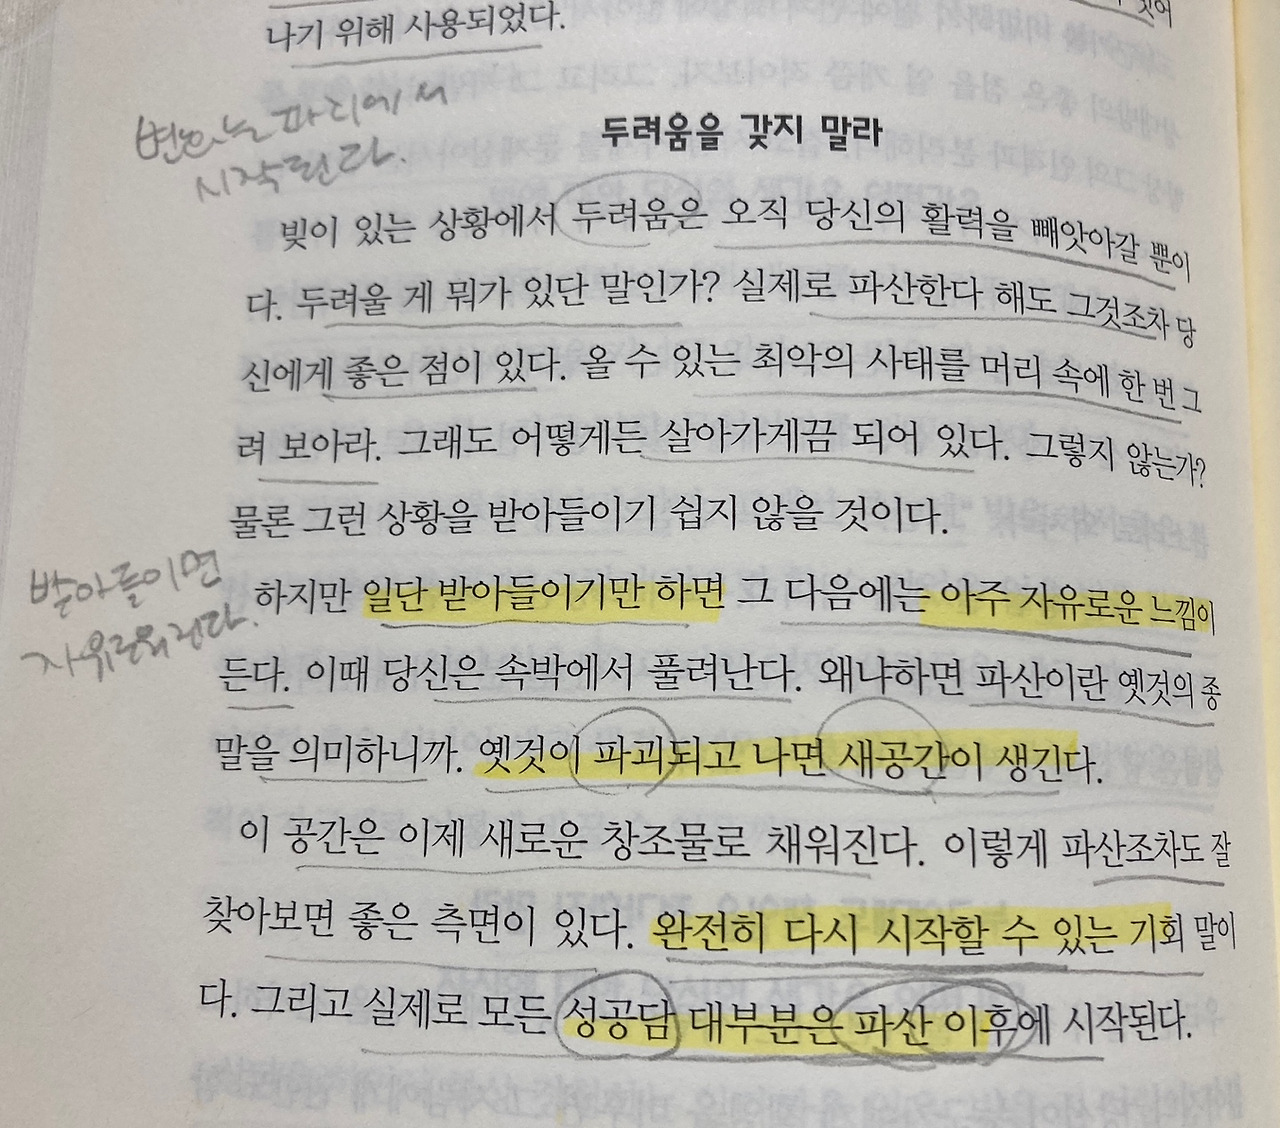 나기 위해 사용되었다.
두려움을 갖지 말라
시작된다.
빚이 있는 상황에서 두려움은 오직 당신의 활력을 빼앗아갈 뿐이
다. 두려울 게 뭐가 있단 말인가? 실제로 파산한다 해도 그것조차 당
신에게 좋은 점이 있다. 올 수 있는 최악의 사태를 머리 속에 한 번 그
려 보아라. 그래도 어떻게든 살아가게끔 되어 있다. 그렇지 않는가?
물론 그런 상황을 받아들이기 쉽지 않을 것이다.
받아들이면
자유로워진다.
하지만 일단 받아들이기만 하면 그 다음에는 아주 자유로운 느낌이
든다. 이때 당신은 속박에서 풀려난다. 왜냐하면 파산이란 옛것의 종
말을 의미하니까. 옛것이 파괴되고 나면 새공간이 생긴다.
이 공간은 이제 새로운 창조물로 채워진다. 이렇게 파산조차도 잘
찾아보면 좋은 측면이 있다. 완전히 다시 시작할 수 있는 기회 말이
다. 그리고 실제로 모든 성공담 대부분은 파산 이후에 시작된다.